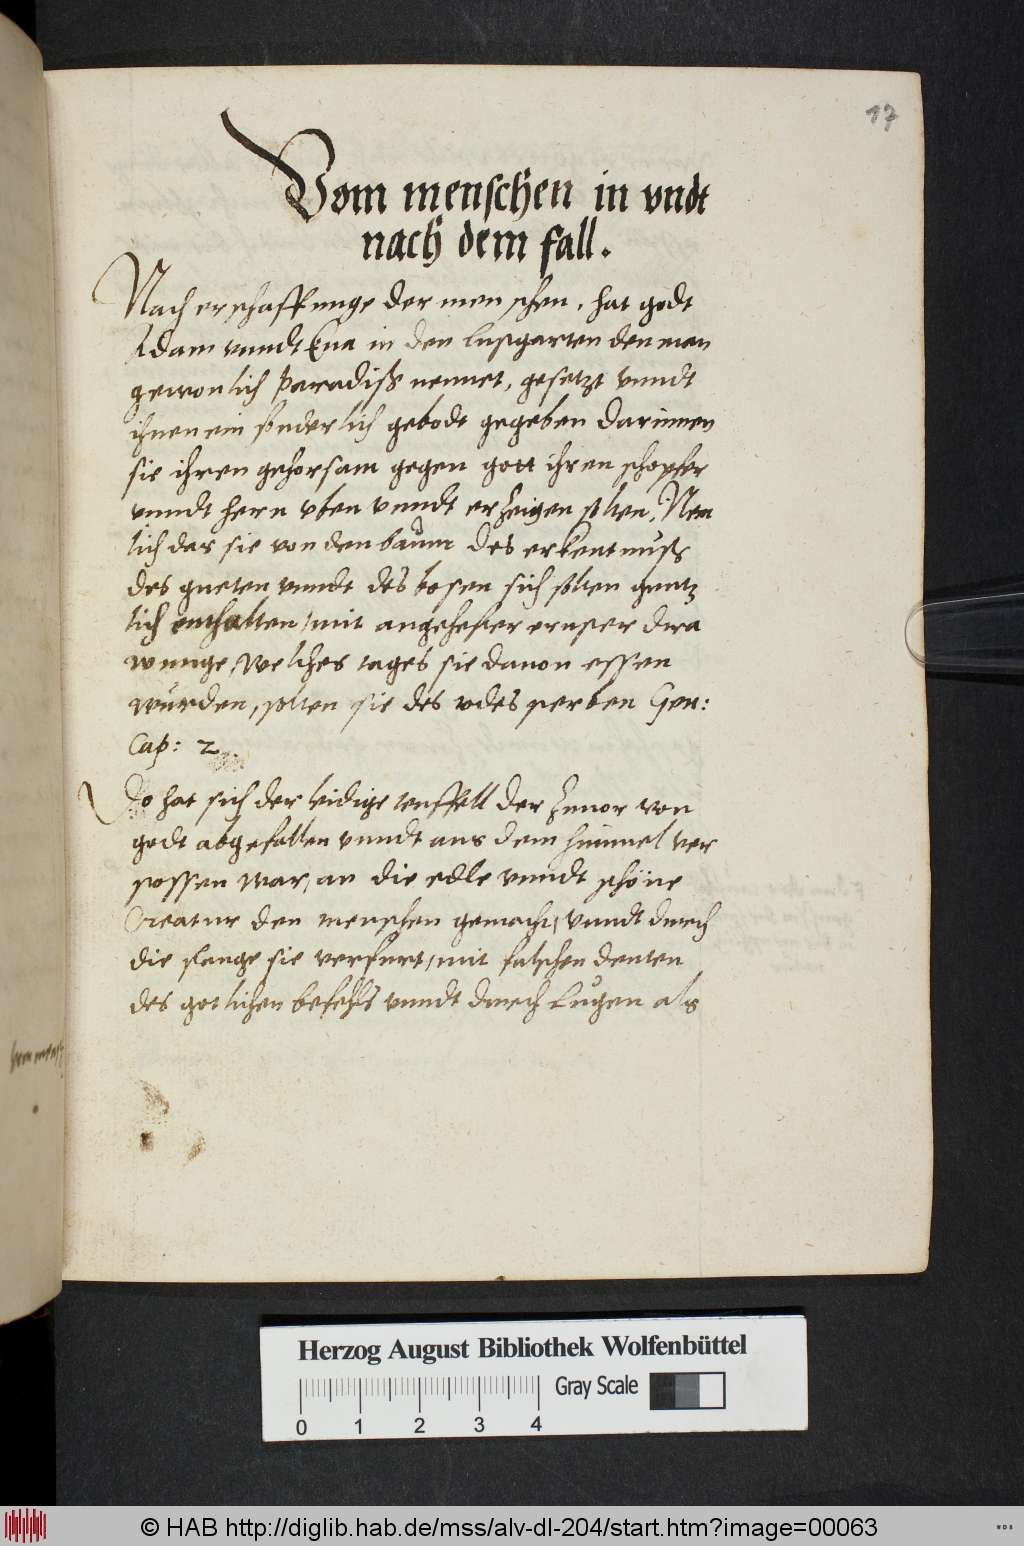 17
Vom menschen in vndt
nach dem fall.
Nach erschaffunge der menschen, hat godt
Adam vnndt Eua in den lustgarten den man
gewonlich Paradiß nennet, gesetzt vnndt
ihnen ein sunderlich gebodt gegeben darinnen
sie ihren gehorsam gegen gott ihren schopfer
vnndt hern vben vnndt erzeigen solten, Nem
lich das sie von den baum des erkentnuss
des gueten vnndt des bosen sich solten gentz
lich enthalten, mit angehefter ernster dra
wunge, welches tages sie dauon essen
wurden, solten sie des todes sterben Gen:
Cap: 2
Do hat sich der leidige teuffell der zuuor von
godt abgefallen vnndt aus dem himmel ver
stossen war, an die edle vnndt schöne
Creatur den menschen gemacht, vnndt durch
die slange sie verfurt, mit falschen deuten
des gotlichen befehls vnndt durch Lugen als
Herzog August Bibliothek Wolfenbüttel
Gray Scale
0 1 2 3 4
© HAB http://diglib.hab.de/mss/alv-dl-204/start.htm?image=00063